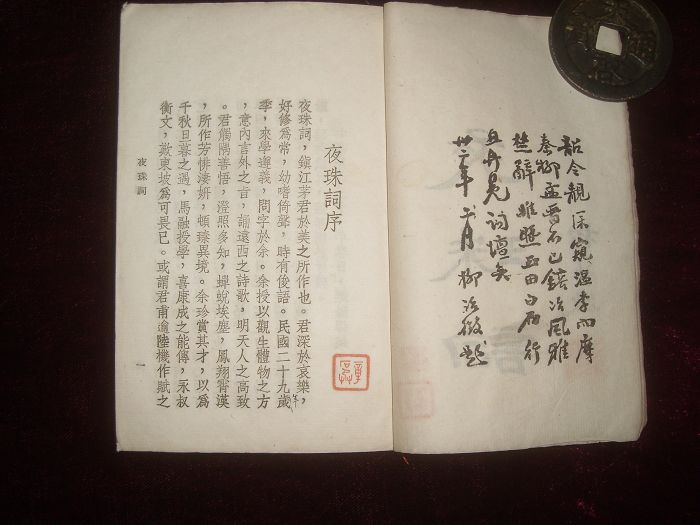 韶令靚深窺溫李而摩
秦柳孟晉不已鎔冶風雅
楚辭 田白石行
且弁冕詞壇矣
年 月 柳詒徵題
夜珠詞序
夜珠詞，鎮江茅君於美之所作也。君深於哀樂，
好修爲常，幼嗜倚聲，時有俊語。民國二十九歲
年
季，來學遵義，問字於余。余授以觀生體物之方
，意內言外之旨，誦遠西之詩歌，明天人之高致
。君觸隅善悟，澄照多知，蟬蛻埃塵，鳳翔霄漢
，所作芳悱淒妍，頓臻異境。余珍賞其才，以爲
千秋旦暮之遇，馬融授學，喜康成之能傳，永叔
衡文，歎東坡爲可畏已。或謂君甫逾陸機作賦之
夜珠詞
一